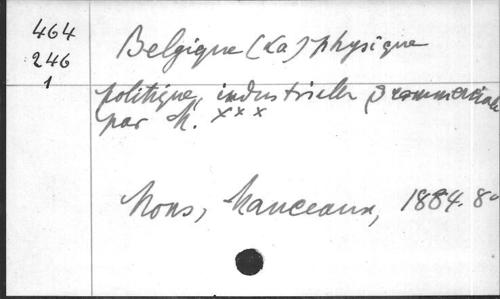 464
246
1
Belgique (La) physique
politique, industrielle & commerciale
par M. xxx
Mons, Manceaux, 1884. 8°